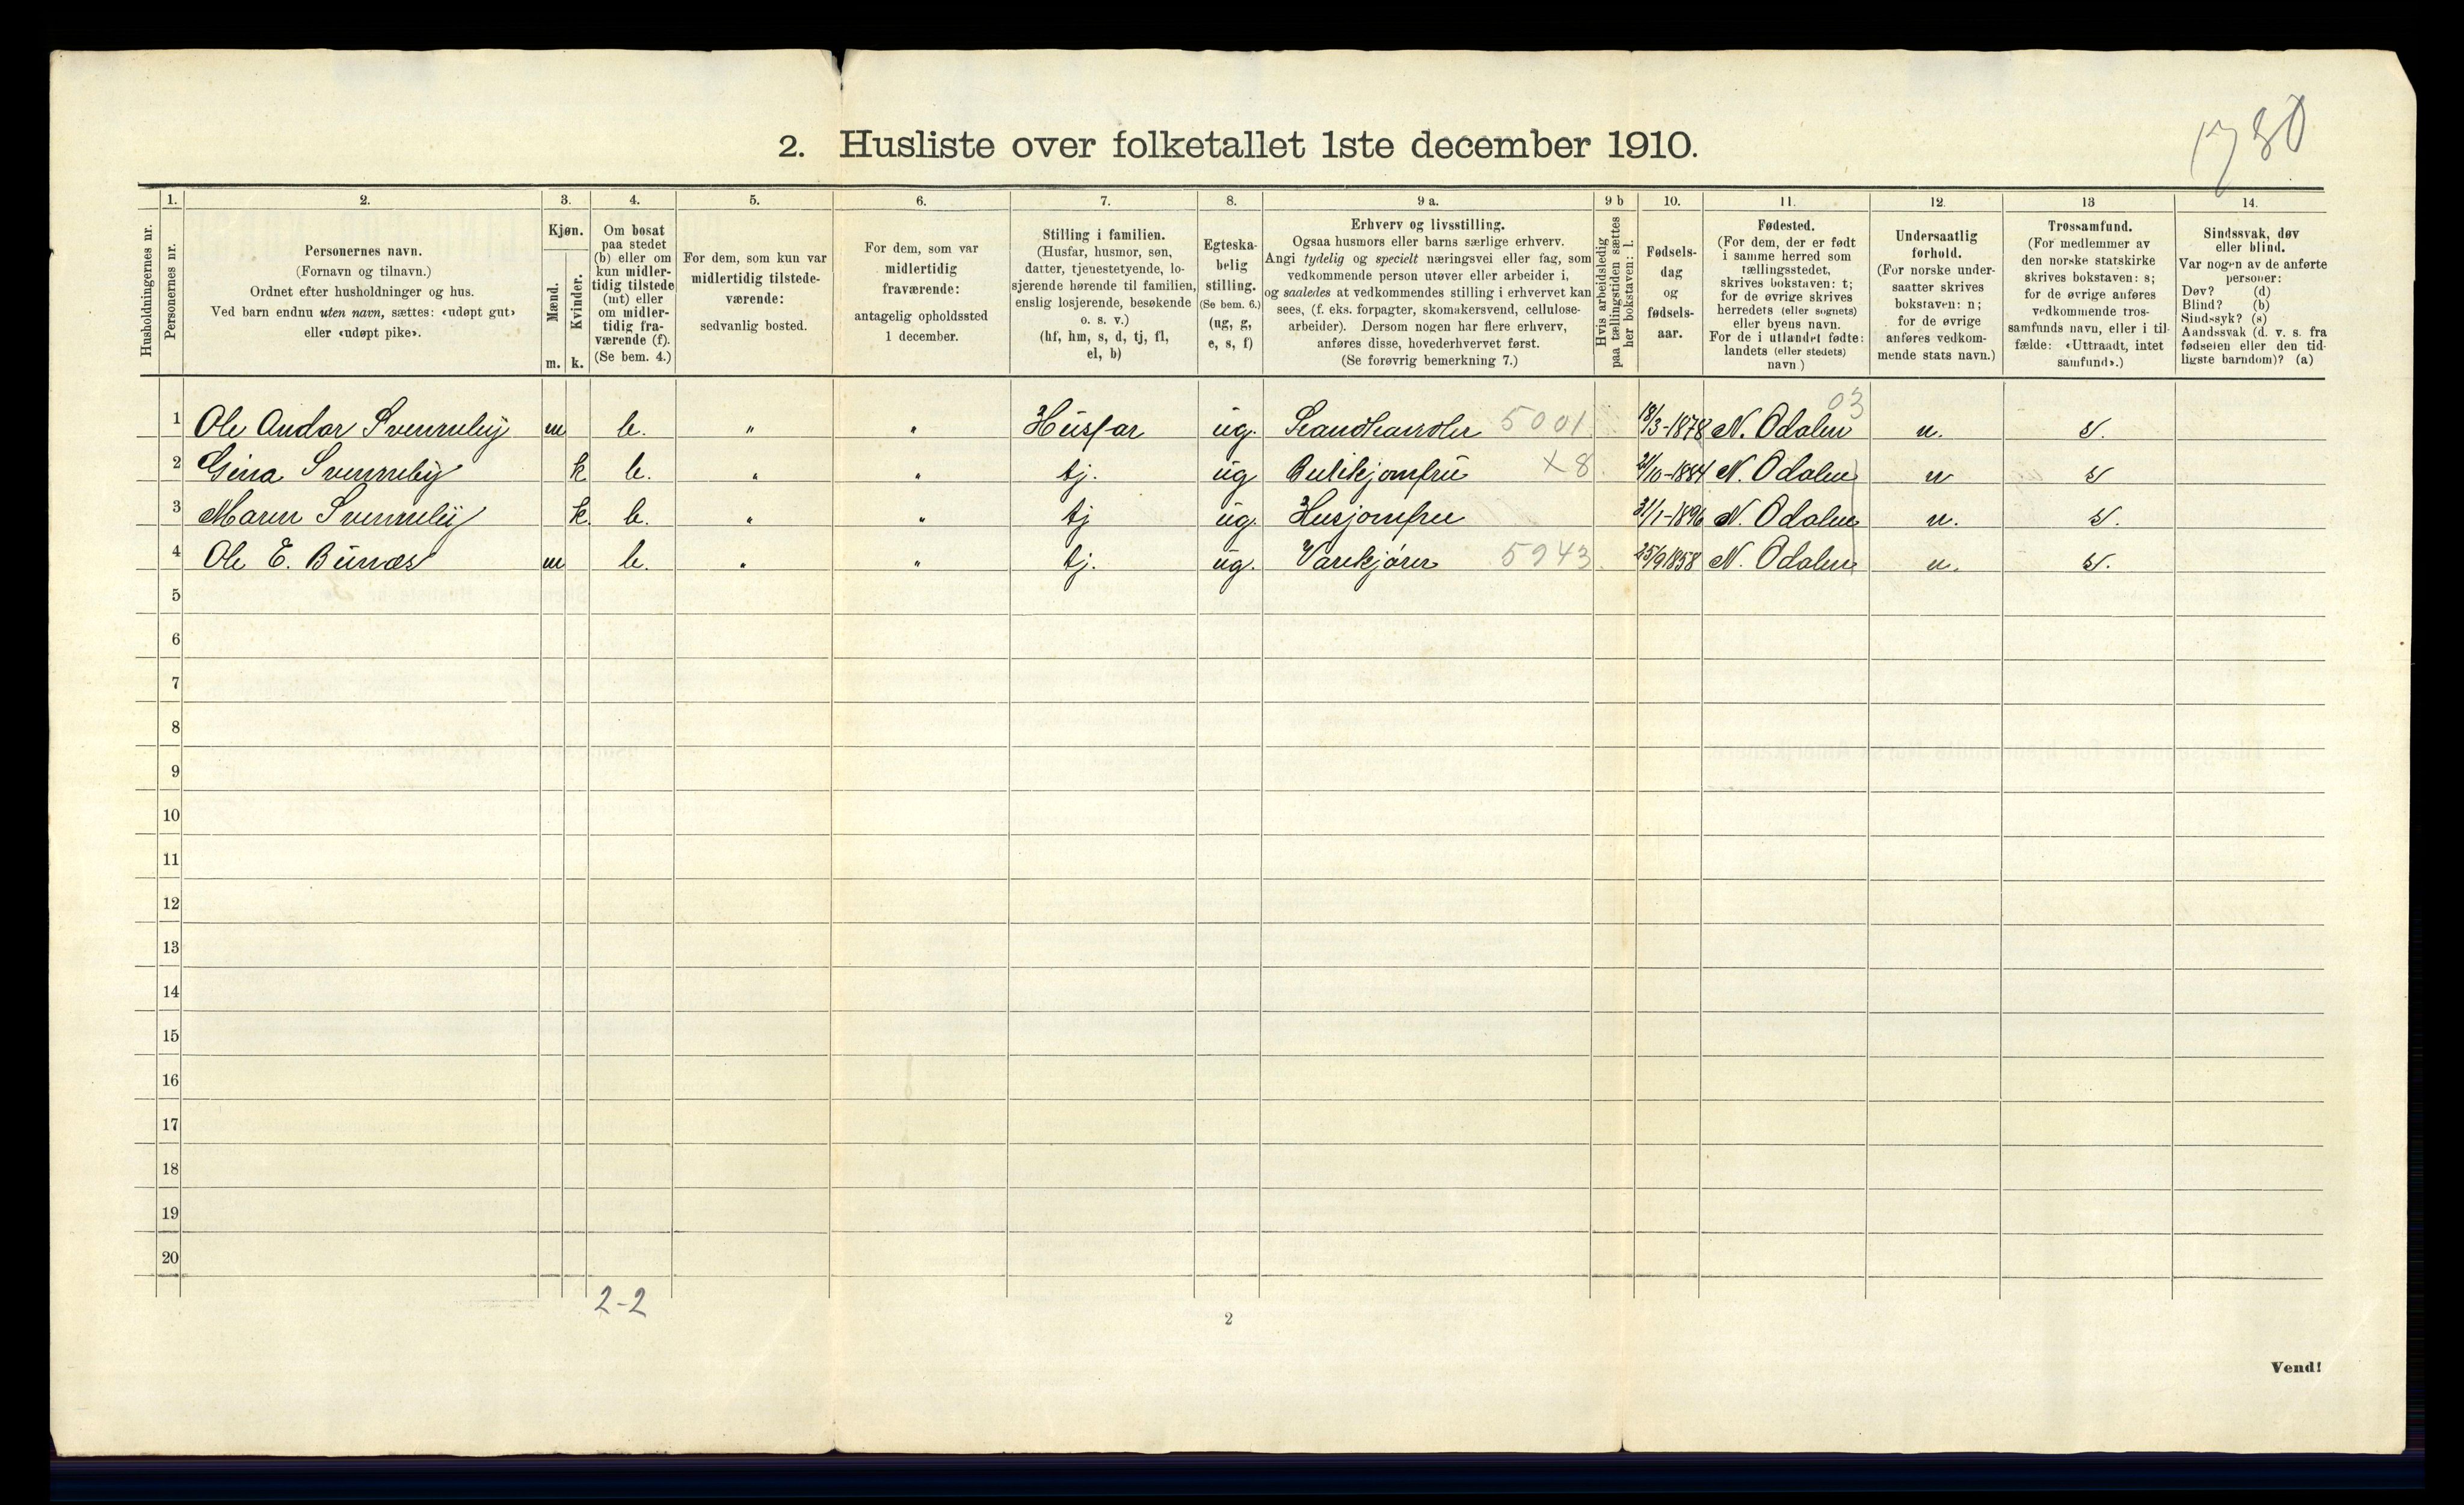 1780
2. Husliste over folketallet 1ste december 1910.
1. 2. 3. 4. 5. 6. 7. 8. 9 a. 9 b 10. 11. 12. 13 14.
Husholdningernes nr.
Personernes nr.
Personernes navn.
(Fornavn og tilnavn.)
Ordnet efter husholdninger og hus.
Ved barn endnu uten navn, sættes: «udøpt gut»
eller «udøpt pike».
Kjøn.
Mænd.
Kvinder.
m. k.
Om bosat
paa stedet
(b) eller om
kun midler-
tidig tilstede
(mt) eller
om midler-
tidig fra-
værende (f).
(Se bem. 4.)
For dem, som kun var
midlertidig tilstede-
værende:
sedvanlig bosted.
For dem, som var
midlertidig
fraværende:
antagelig opholdssted
1 december.
Stilling i familien.
(Husfar, husmor, søn,
datter, tjenestetyende, lo-
sjerende hørende til familien,
enslig losjerende, besøkende
o. s. v.)
(hf, hm, s, d, tj, fl,
el, b)
Egteska-
belig
stilling.
(Se bem. 6.)
(ug, g,
e, s, f)
Erhverv og livsstilling.
Ogsaa husmors eller barns særlige erhverv.
Angi tydelig og specielt næringsvei eller fag, som
vedkommende person utøver eller arbeider i,
og saaledes at vedkommendes stilling i erhvervet kan
sees, (f. eks. forpagter, skomakersvend, cellulose-
arbeider). Dersom nogen har flere erhverv,
anføres disse, hovederhvervet først.
(Se forøvrig bemerkning 7.)
Hvis arbeidsledig
paa tællingstiden sættes
her bokstaven: l.
Fødsels-
dag
og
fødsels-
aar.
Fødested.
(For dem, der er født
i samme herred som
tællingsstedet,
skrives bokstaven: t;
for de øvrige skrives
herredets (eller sognets)
eller byens navn.
For de i utlandet fødte:
landets (eller stedets)
navn.)
Undersaatlig
forhold.
(For norske under-
saatter skrives
bokstaven: n;
for de øvrige
anføres vedkom-
mende stats navn.)
Trossamfund.
(For medlemmer av
den norske statskirke
skrives bokstaven: s;
for de øvrige anføres
vedkommende tros-
samfunds navn, eller i til-
fælde: «Uttraadt, intet
samfund».)
Sindssvak, døv
eller blind.
Var nogen av de anførte
personer:
Døv? (d)
Blind? (b)
Sindssyk? (s)
Aandssvak (d. v. s. fra
fødselen eller den tid-
ligste barndom)? (a)
03
1 Ole Andor Svenneby m b. " " Husfar ug. Landhandler 5001 18/3-1878 N. Odalen n. s.
2 Gina Svenneby k b. " " tj. ug Butikjomfru x8 /10-1884 N. Odalen n s
3 Maren Svenneby k. b. " " tj ug. Husjomfru 31/1-1896 N. Odalen n. s.
4 Ole E. Bunæs m b. " " tj. ug. Varekjører 5943 25/9 1858 N. Odalen n. s.
5
6
7
8
9
10
11
12
13
14
15
16
17
18
19
20
2-2
2
Vend!